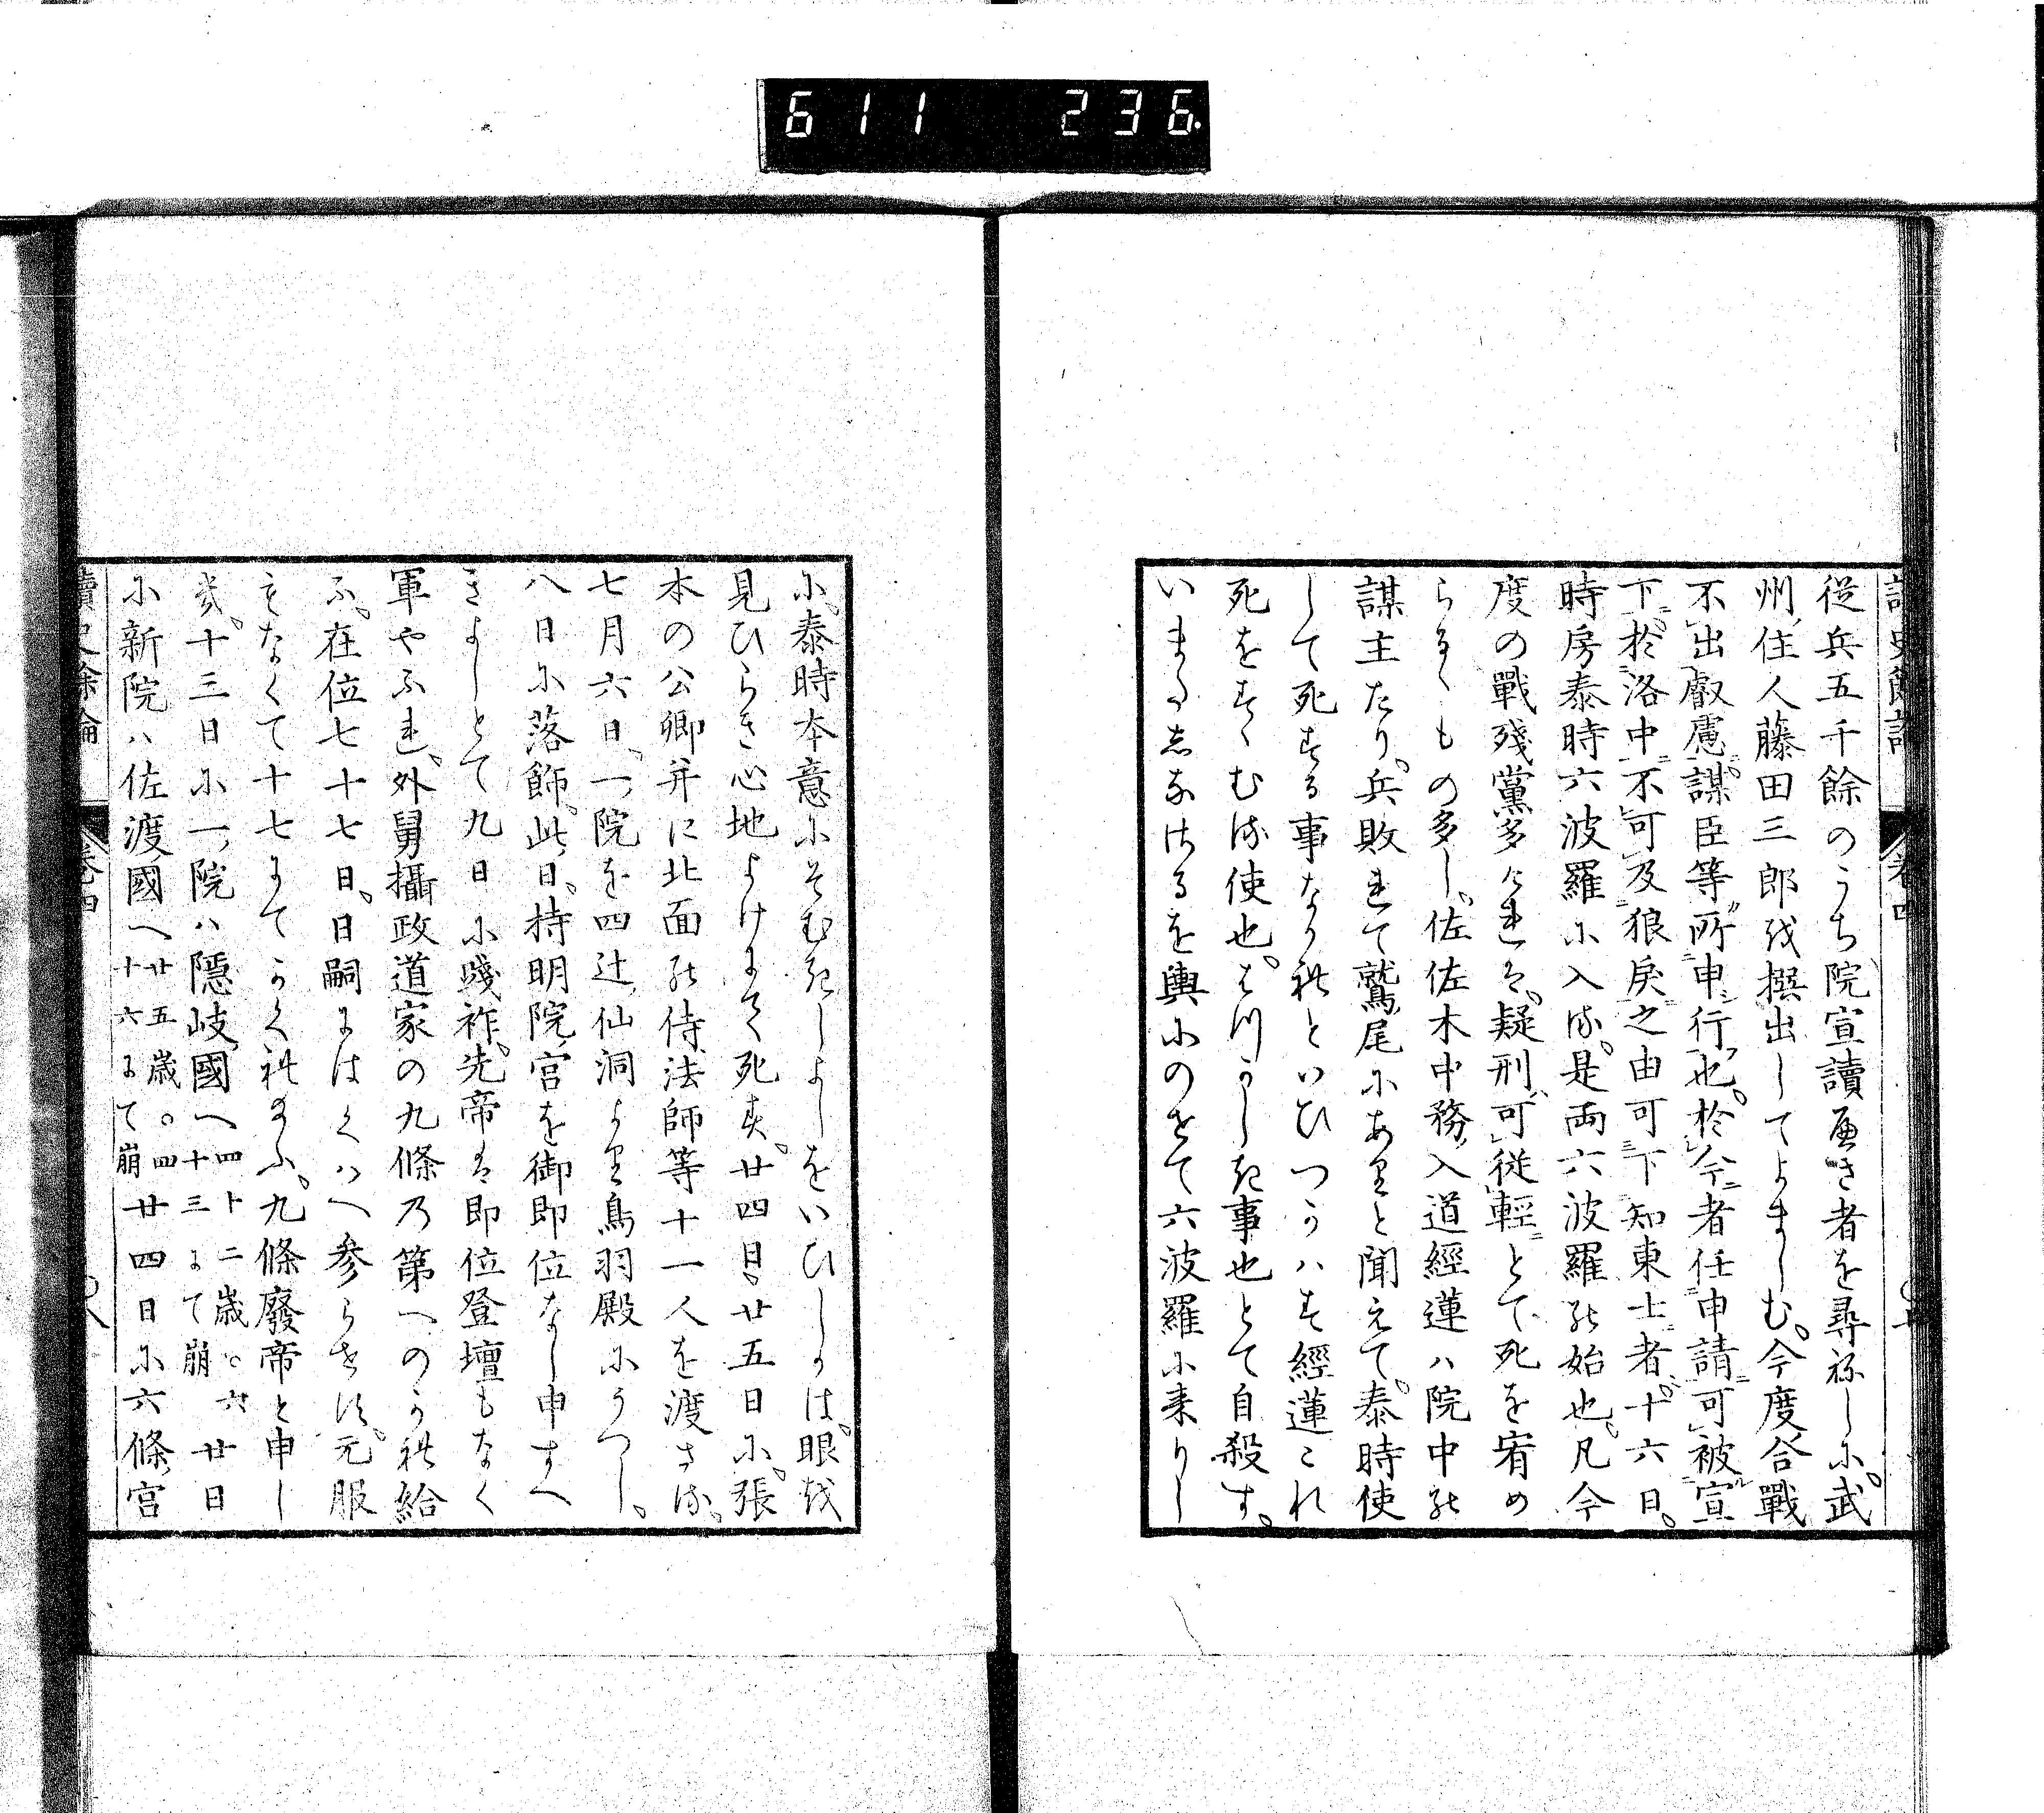 611 236.
従兵五千餘のうち院宣讀へき者を尋ねしに。武
州住人藤田三郎を撰出してよましむ。今度合戰
不出叡慮。謀臣等所申行也。於今者任申請可被宣
下。於洛中不可及狼戻之由可下知東士者。十六日。
時房泰時六波羅に入る。是両六波羅の始也。凡今
度の戰殘黨多けれは。疑刑可従輕とて死を宥め
らるゝもの多し。佐佐木中務入道經蓮ハ院中の
謀主たり。兵敗れて鷲尾にありと聞えて。泰時使
して死する事なかれといひつかハす經蓮これ
死をすゝむる使也。はつかしき事也とて自殺す。
いまた志なさるを輿にのせて六波羅に来りし
に。泰時本意にそむきしよしをいひしかは。眼を
見ひらき心地よけにて死す。廿四日。廿五日に。張
本の公卿并に北面の侍法師等十一人を渡さる。
七月六日。一院を四辻仙洞より鳥羽殿にうつし。
八日に落飾。此日。持明院宮を御即位なし申すへ
きよしとて九日に踐祚。先帝は即位登壇もなく
軍やふれ。外舅攝政道家の九條乃第へのかれ給
ふ。在位七十七日。日嗣にはくハへ参らせす。元服
もなくて十七にてかくれ給ふ。九條廢帝と申し
き。十三日に一院ハ隱岐國へ四十二歳。六十三にて崩廿日
に新院ハ佐渡國へ廿五歳。四十六にて崩廿四日に六條宮
讀史餘論
巻四